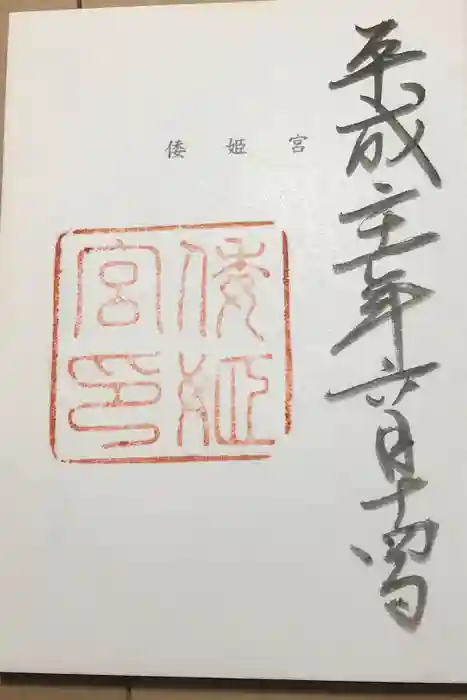 平成二十一年六月十四日
倭姫宮
倭姫
宮印